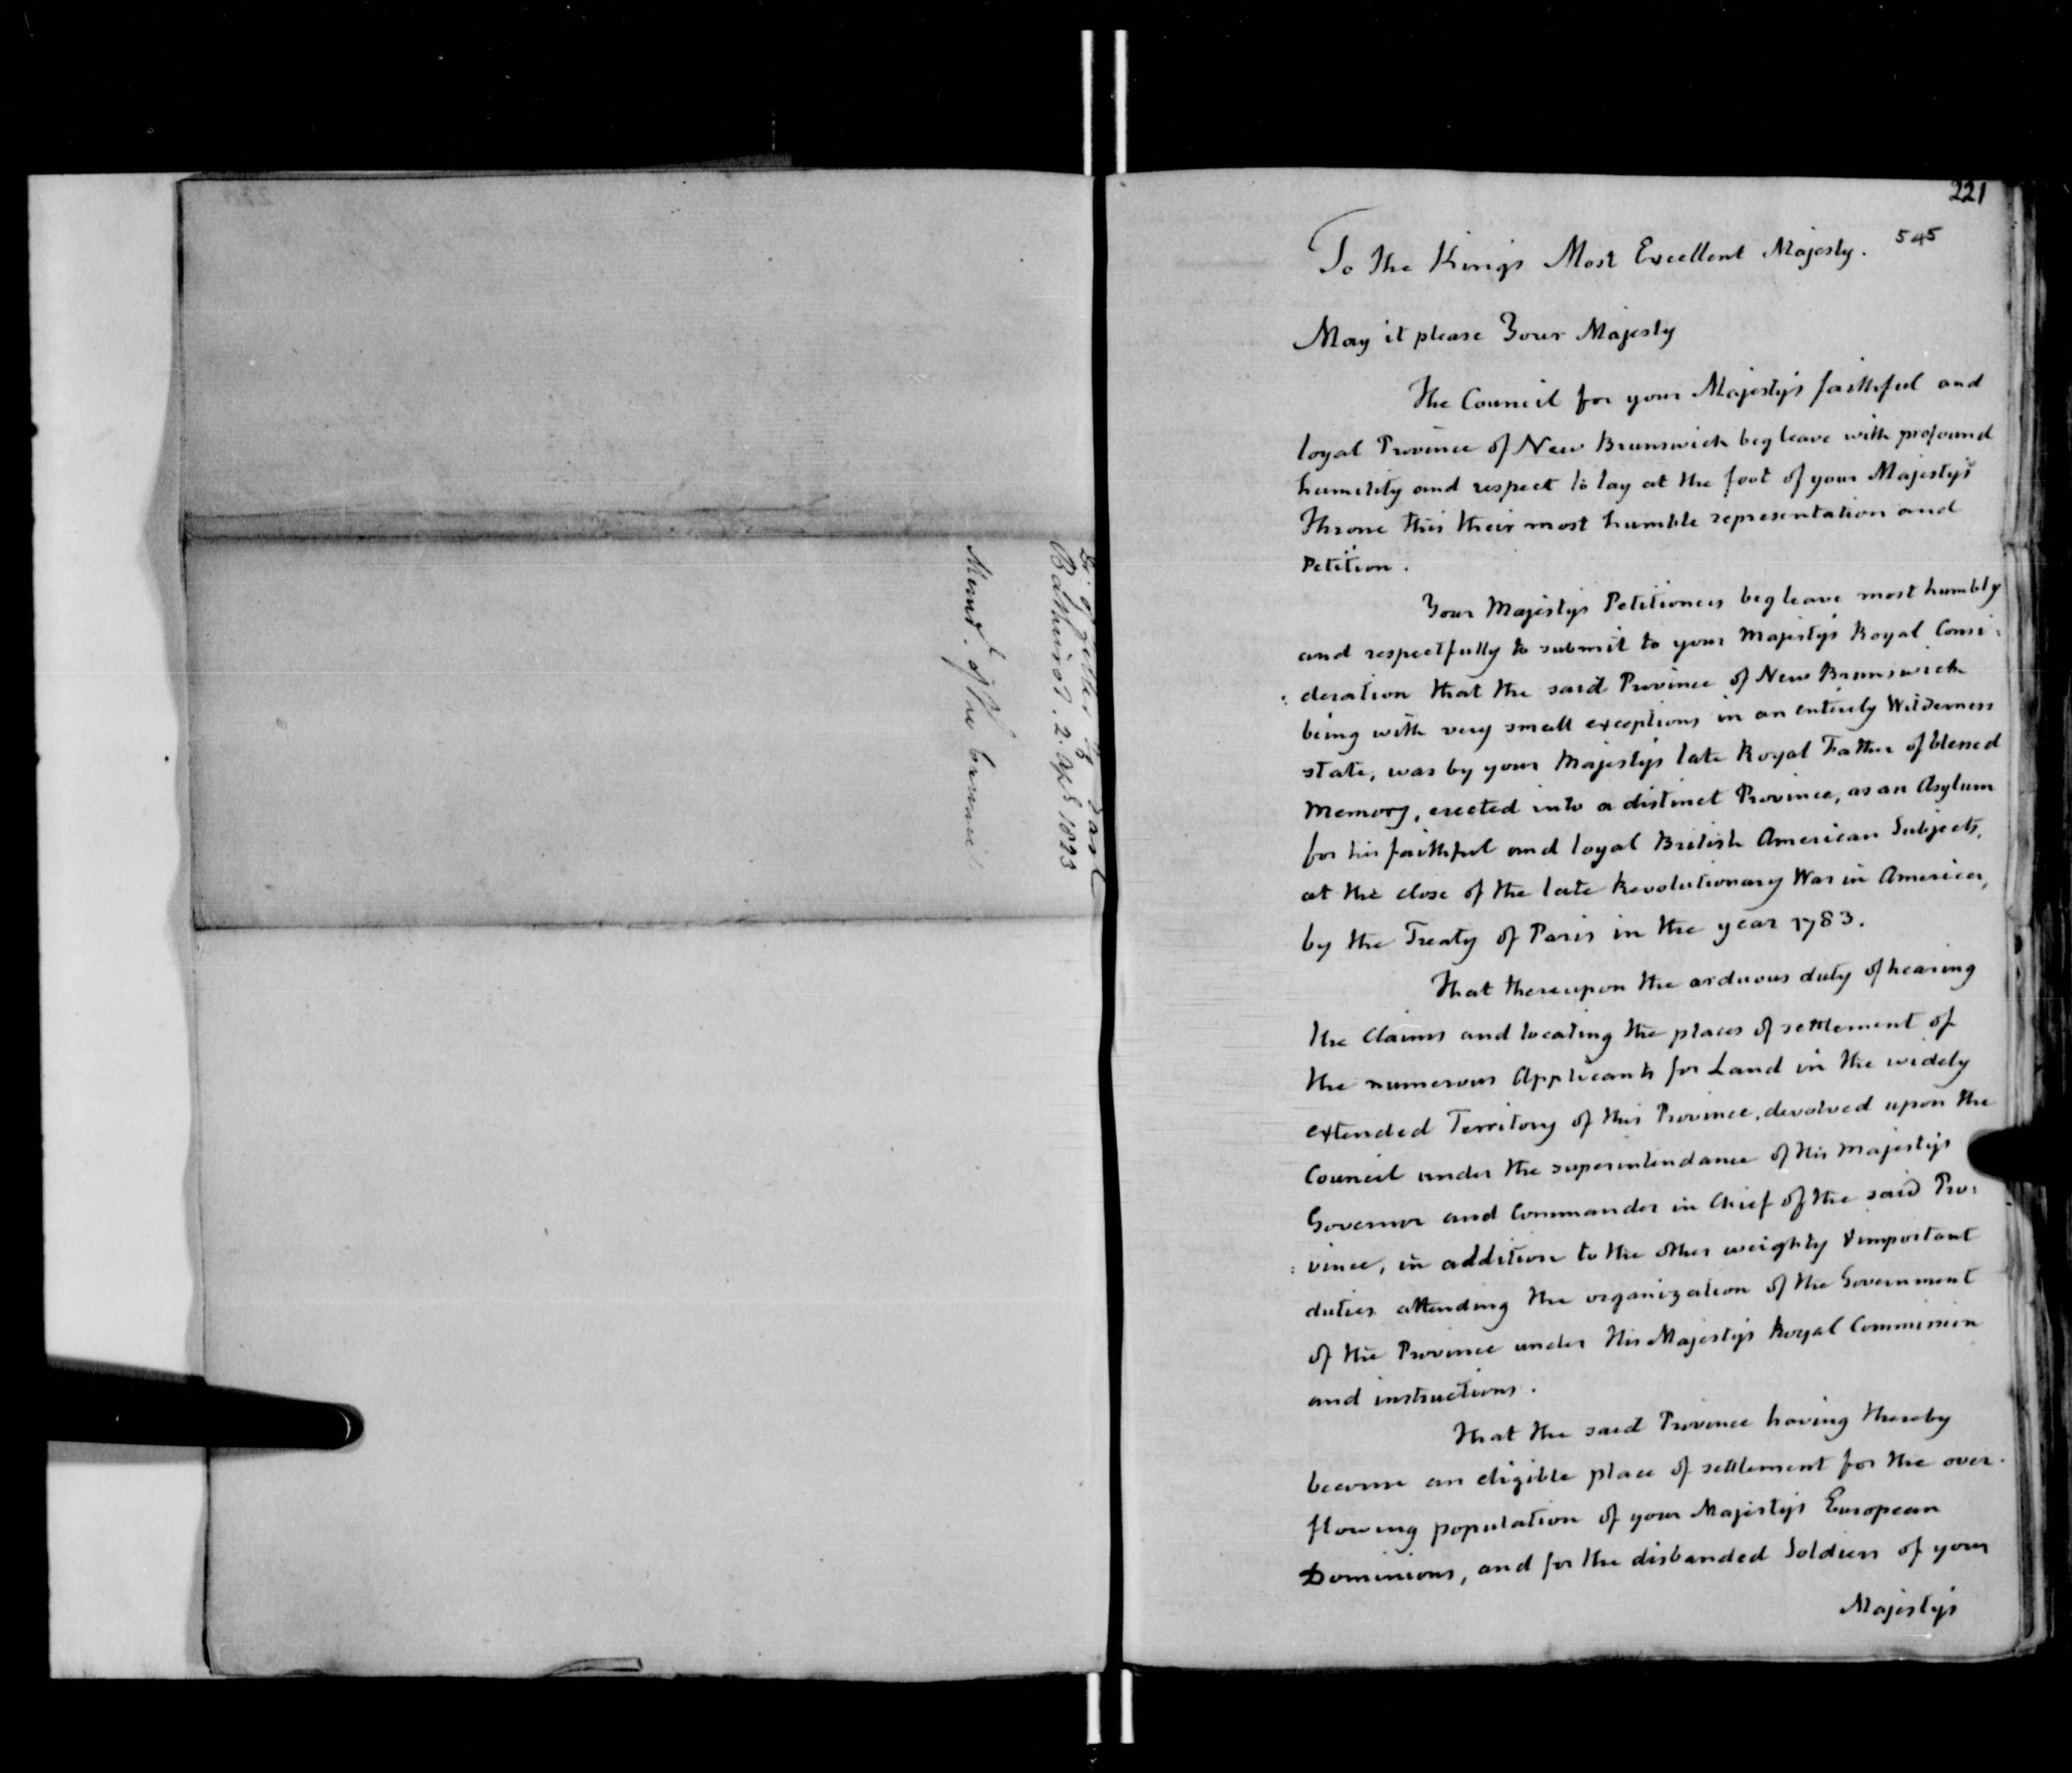 Dr. of letter to Earl
Bathurst. 2. Apl 1823
Meml. of the Council
221
545
To the King's Most Excellent Majesty.
May it please Your Majesty
The Council for your Majesty's faithful and
loyal Province of New Brunswick beg leave with profound
humility and respect to lay at the foot of your Majesty's
Throne this their most humble representation and
Petition.
Your Majesty's Petitioners beg leave most humbly
and respectfully to submit to your Majesty's Royal Consi:
:deration that the said Province of New Brunswick
being with very small exceptions in an entirely Wilderness
state, was by your Majesty's late Royal Father of blessed
Memory, erected into a distinct Province, as an Asylum
for his faithful and loyal British American Subjects,
at the close of the late Revolutionary War in America,
by the Treaty of Paris in the year 1783.
That thereupon the arduous duty of hearing
the Claims and locating the places of settlement of
the numerous Applicants for Land in the widely
extended Territory of this Province, devolved upon the
Council under the superintendance of His Majesty's
Governor and Commander in Chief of the said Pro:
:vince, in addition to the other weighty & important
duties attending the organization of the Government
of the Province under His Majesty's Royal Commission
and instructions.
That the said Province having thereby
become an eligible place of settlement for the over-
flowing population of your Majesty's European
Dominions, and for the disbanded Soldiers of your
Majesty's